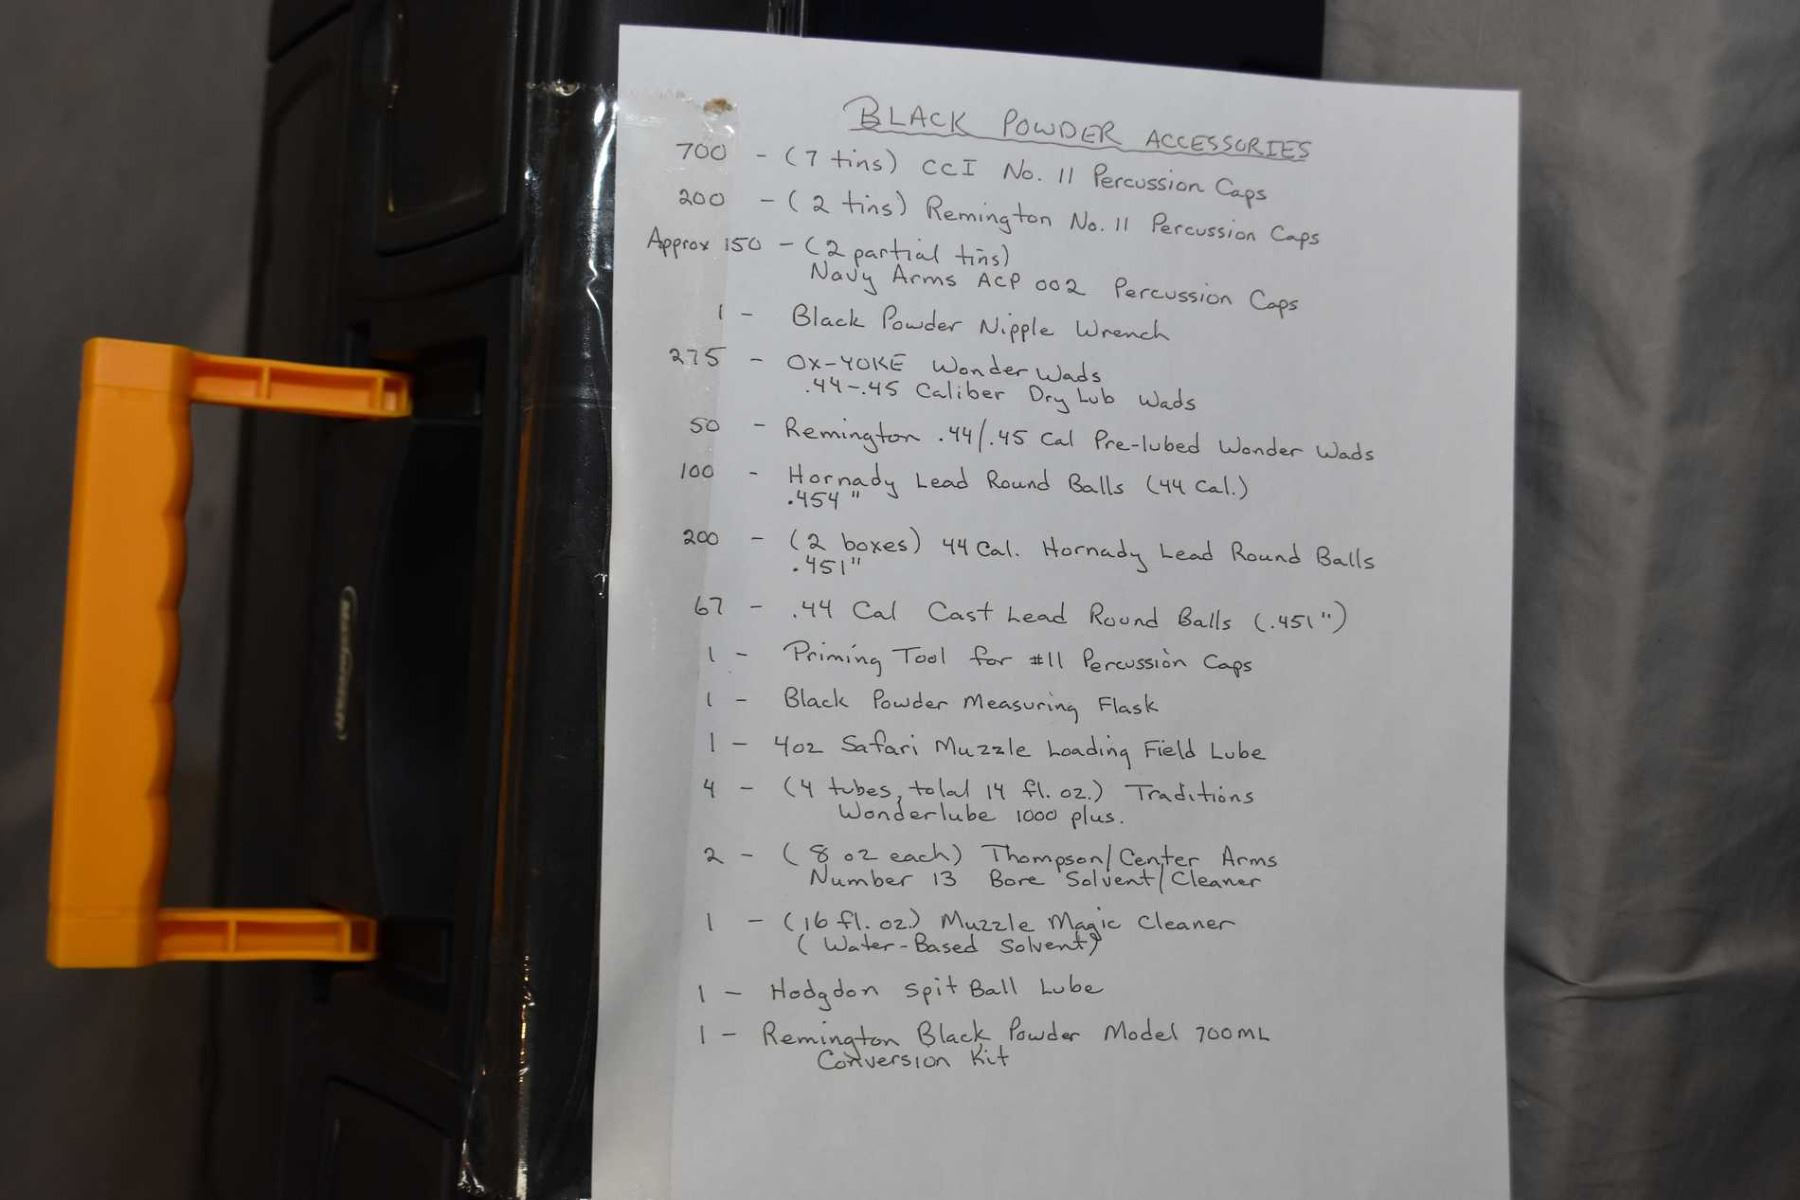 BLACK POWDER ACCESSORIES
700 - (7 tins) CCI No. 11 Percussion Caps
200 - (2 tins) Remington No. 11 Percussion Caps
Approx 150 - (2 partial tins)
Navy Arms ACP 002 Percussion Caps
1 - Black Powder Nipple Wrench
275 - OX-YOKE Wonder Wads
.44-.45 Caliber Dry Lub Wads
50 - Remington .44/.45 Cal Pre-lubed Wonder Wads
100 - Hornady Lead Round Balls (44 Cal.)
.454"
200 - (2 boxes) 44 Cal. Hornady Lead Round Balls
.451"
67 - .44 Cal Cast Lead Round Balls (.451")
1 - Priming Tool for #11 Percussion Caps
1 - Black Powder Measuring Flask
1 - 4oz Safari Muzzle Loading Field Lube
4 - (4 tubes, total 14 fl. oz.) Traditions
Wonderlube 1000 plus.
2 - (8 oz each) Thompson/Center Arms
Number 13 Bore Solvent/Cleaner
1 - (16 fl. oz) Muzzle Magic Cleaner
(Water-Based Solvent)
1 - Hodgdon Spit Ball Lube
1 - Remington Black Powder Model 700 ML
Conversion Kit